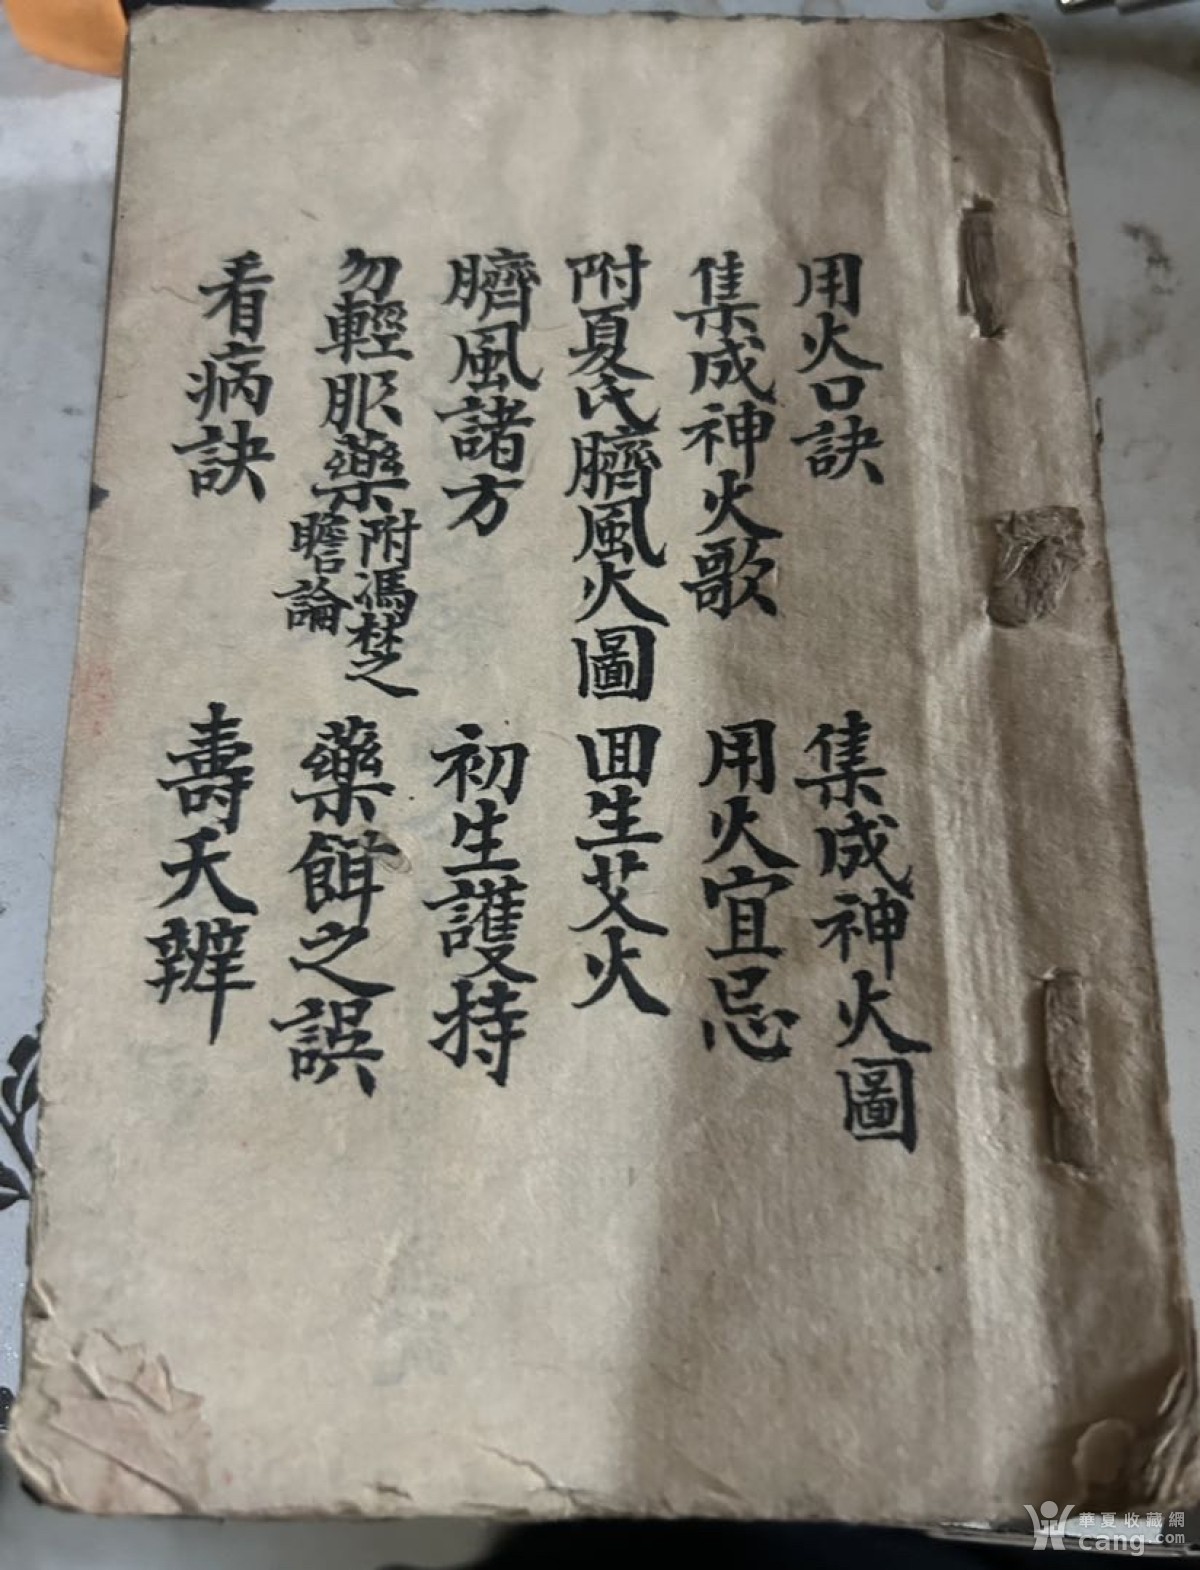 用火口訣
集成神火圖
集成神火歌
用火宜忌
附夏氏臍風火圖
回生艾火
臍風諸方
初生護持
勿輕服藥
附馮楚之
瞻論
藥餌之誤
看病訣
壽夭辨
華夏收藏網
cang.com